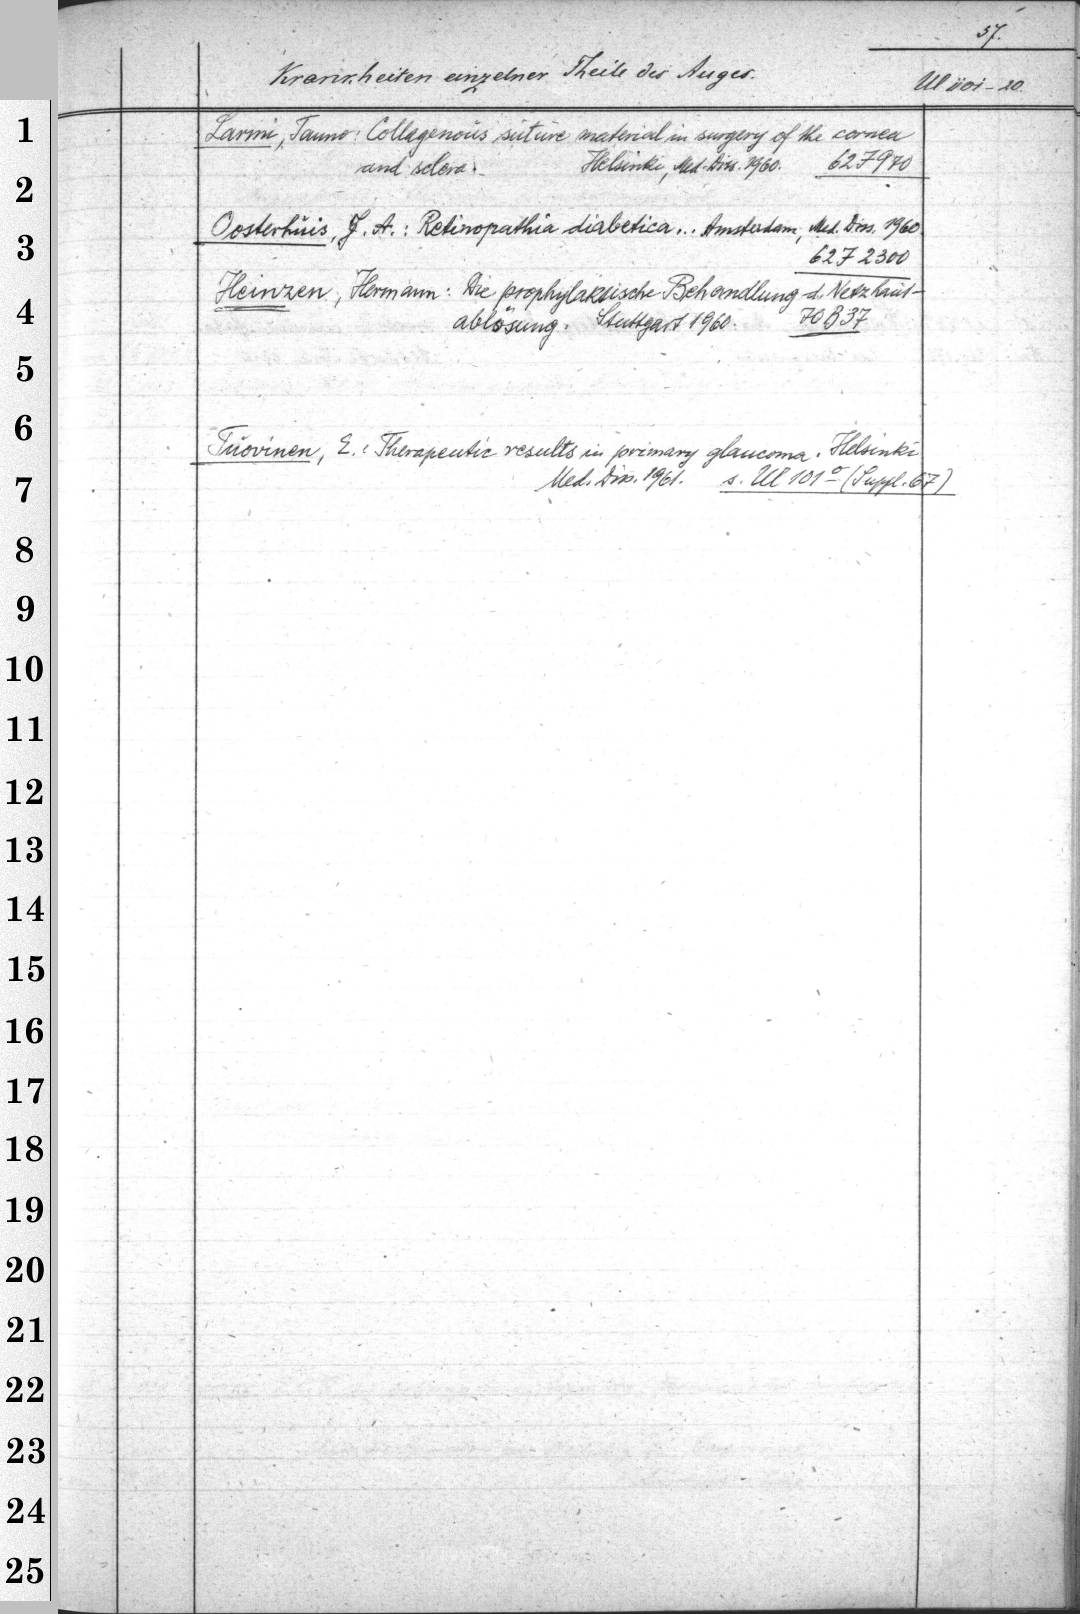 57.
Krankheiten einzelner Theile des Auges.
Ul 1101-20.
1
Larmi, Tauno: Collagenous suture material in surgery of the cornea
and sclera. Helsinki, Med. Diss. 1960. 627970
2
Oosterhuis, J. A.: Retinopathia diabetica... Amsterdam, Med. Diss. 1960.
3
627 2300
Heinzen, Hermann: Die prophylaktische Behandlung d. Netzhaut-
4
ablösung. Stuttgart 1960. 70 B 37
5
6
Tuovinen, E.: Therapeutic results in primary glaucoma. Helsinki
7
Med. Diss. 1961. s. Ul 101ª (Suppl. 67)
8
9
10
11
12
13
14
15
16
17
18
19
20
21
22
23
24
25